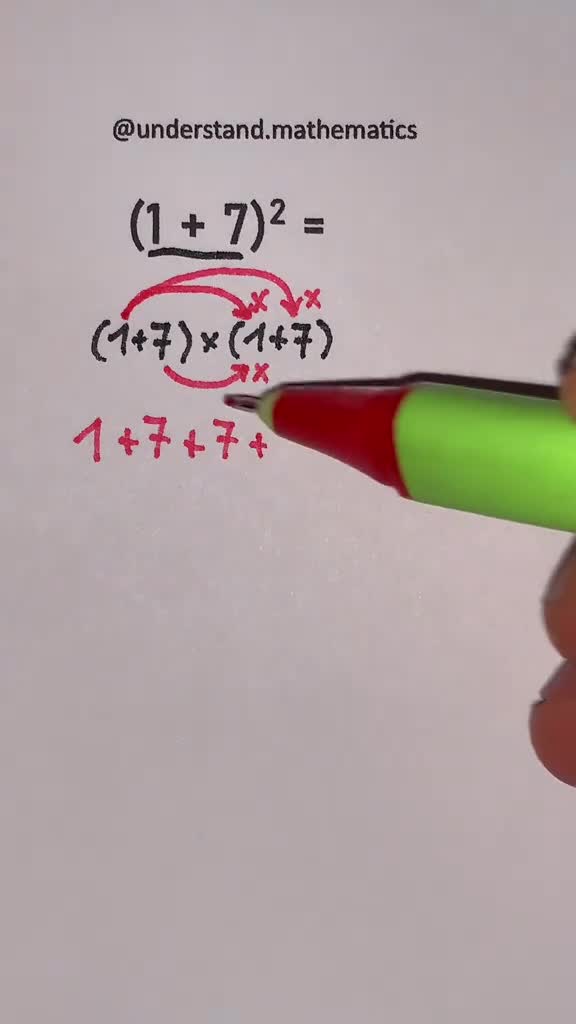 @understand.mathematics
(1 + 7)² =
x x
(1+7)×(1+7)
x
1+7+7+